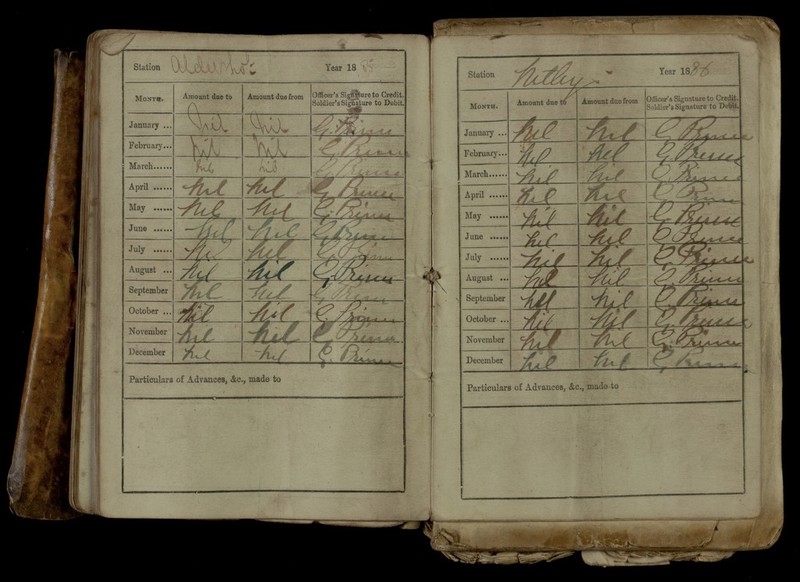 Station Aldershot Year 1885
Month. Amount due to Amount due from Officer's Signature to Credit. Soldier's Signature to Debit.
January ... Nil Nil G. Prince
February... Nil Nil G. Prince
March...... Nil Nil G. Prince
April ...... Nil Nil G. Prince
May ...... Nil Nil G. Prince
June ...... Nil Nil G. Prince
July ...... Nil Nil G. Prince
August ... Nil Nil G. Prince
September Nil Nil G. Prince
October ... Nil Nil G. Prince
November Nil Nil G. Prince
December Nil Nil G. Prince
Particulars of Advances, &c., made to
Station Netley Year 1886
Month. Amount due to Amount due from Officer's Signature to Credit. Soldier's Signature to Debit.
January ... Nil Nil G. Prince
February... Nil Nil G. Prince
March...... Nil Nil G. Prince
April ...... Nil Nil G. Prince
May ...... Nil Nil G. Prince
June ...... Nil Nil G. Prince
July ...... Nil Nil G. Prince
August ... Nil Nil G. Prince
September Nil Nil G. Prince
October ... Nil Nil G. Prince
November Nil Nil G. Prince
December Nil Nil G. Prince
Particulars of Advances, &c., made to